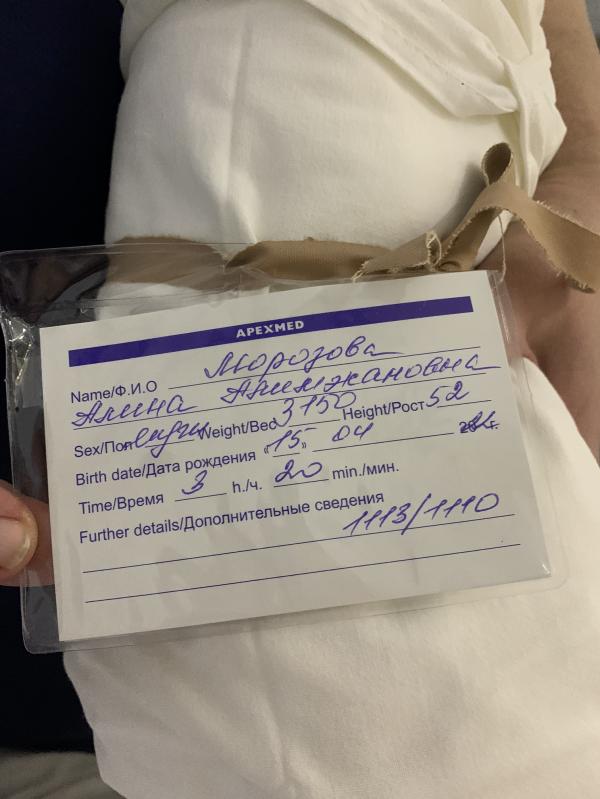 APEXMED
Name/Ф.И.О Морозова
Алина Алимжановна
Sex/Пол Weight/Вес 3150 Height/Рост 52
Birth date/Дата рождения «15» 04
Time/Время 3 h./ч. 20 min./мин.
Further details/Дополнительные сведения
1113/1110